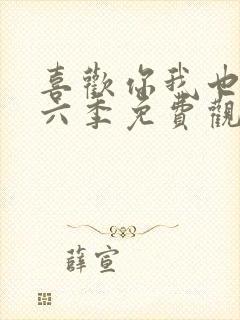 喜歡你我也
六季免費觀
薛宣